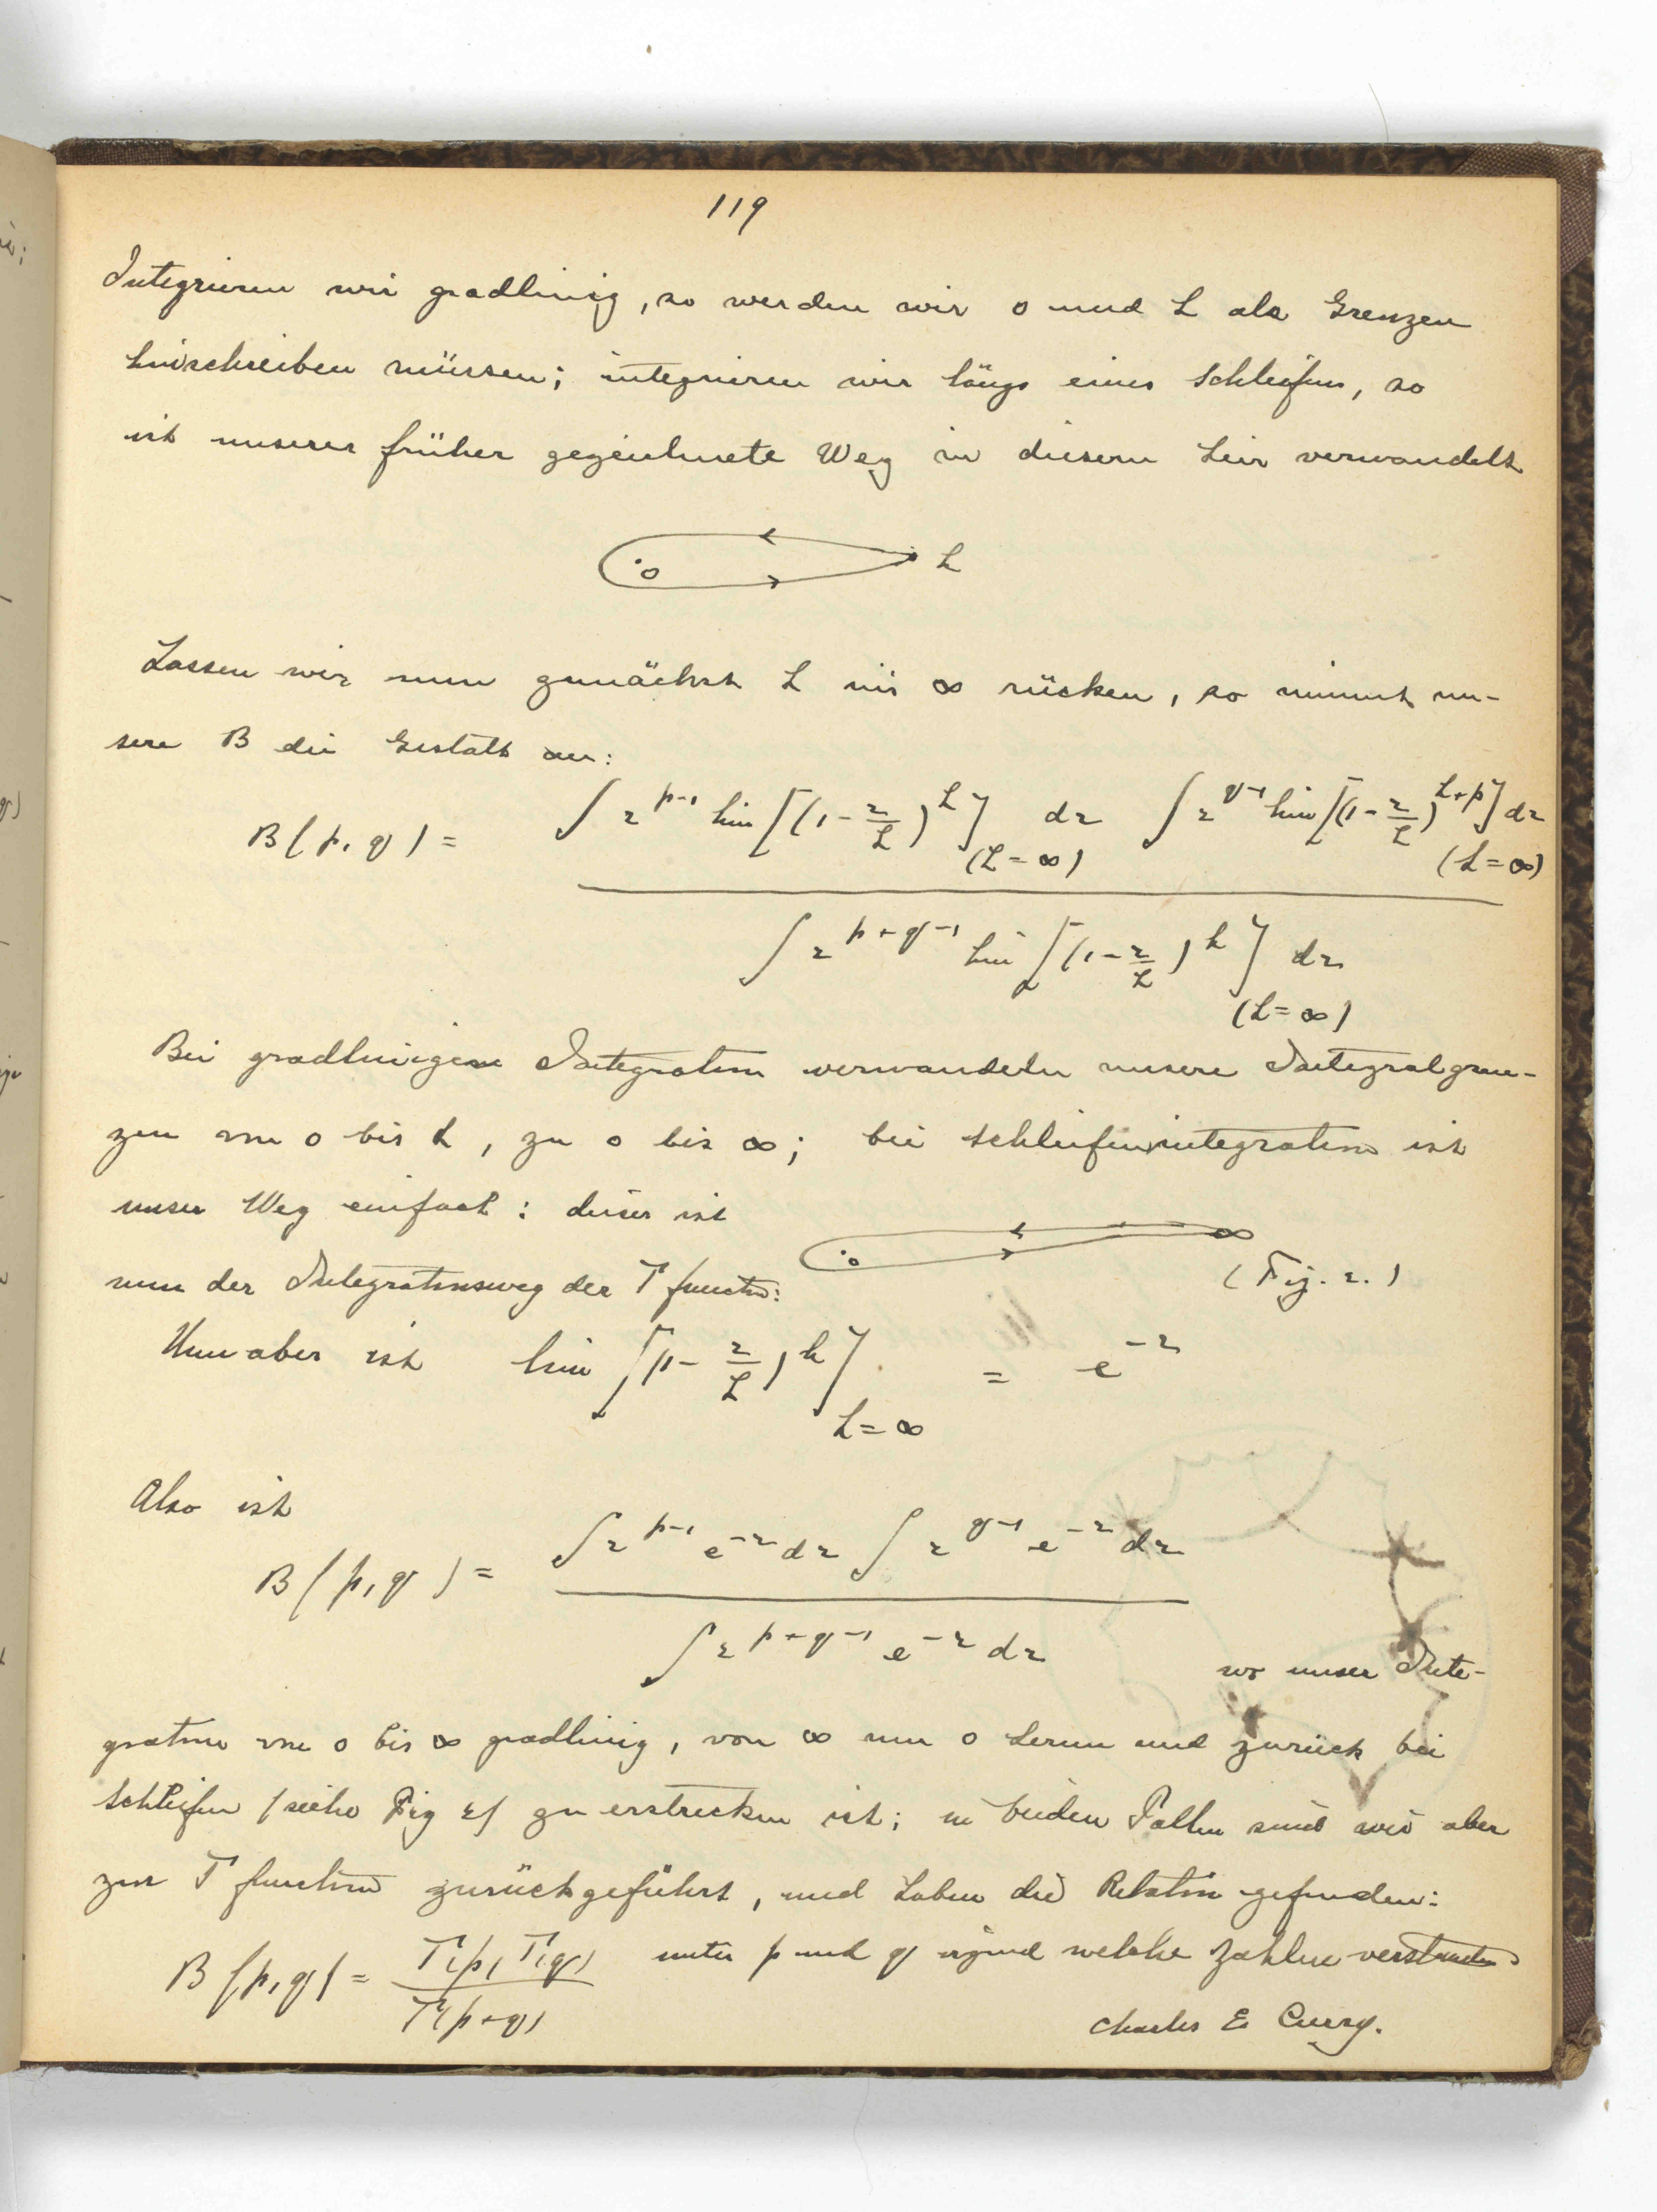 119
Integrieren wir gradlinig, so werden wir 0 und L als Grenzen
hinschreiben müssen; integrieren wir längs eines Schleifens, so
ist unserer früher gezeichnete Weg in diesem hier verwandelt
o L
Lassen wir nun zunächst L ins ∞ rücken, so nimmt un-
sere B die Gestalt an:
B(p, q) = ∫ z^{p-1} lim [(1 - z/L)^L] (L=∞) dz ∫ z^{q-1} lim [(1 - z/L)^{L+p}] dz (L=∞)
∫ z^{p+q-1} lim [(1 - z/L)^L] dz (L=∞)
Bei gradlinigen Integration verwandeln unsere Integralgren-
zen von 0 bis L, zu 0 bis ∞; bei Schleifenintegration ist
unser Weg einfach: dieser ist
o ∞
nun der Integrationsweg der Γ function:
(Fig. 2.)
Nun aber ist lim [(1 - z/L)^L] L=∞ = e^{-z}
Also ist
B(p, q) = ∫ z^{p-1} e^{-z} dz ∫ z^{q-1} e^{-z} dz
∫ z^{p+q-1} e^{-z} dz
wo unser Inte-
gration von 0 bis ∞ gradlinig, von ∞ um 0 herum und zurück bei
Schleifen (siehe Fig 2) zu erstrecken ist; in beiden Fallen sind wir aber
zur Γ function zurückgeführt, und haben die Relation gefunden:
B(p, q) = Γ(p) Γ(q) / Γ(p+q) unter p und q irgend welche Zahlen verstanden
Charles E. Curry.